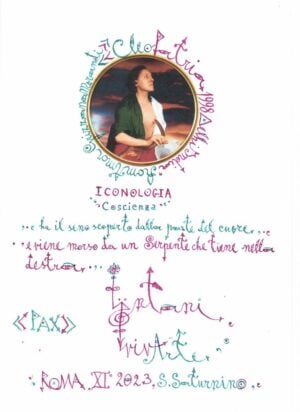 «Cleopatria 1998 dell'
ICONOLOGIA
Coscienza
...e ha il seno scoperto dalla parte del cuore...
e viene morso da un Serpente che tiene nella
destra...
Lintani
«PAX»
vivArte
ROMA XI 2023, S. Saturnino